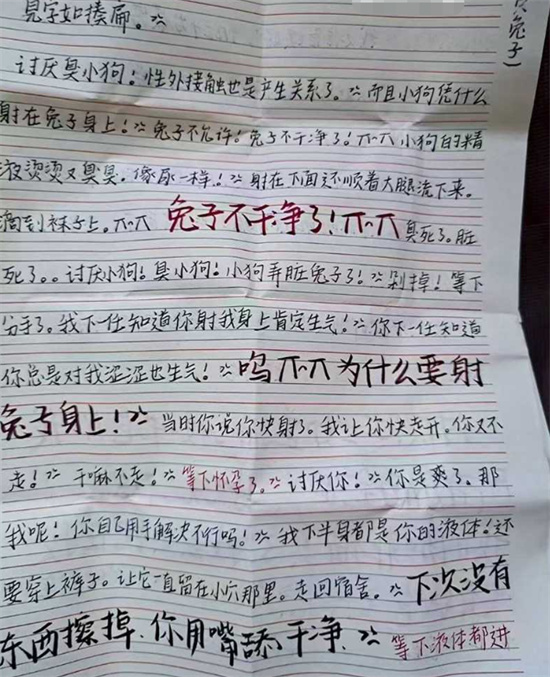 兔子)
见字如揍扁。
讨厌臭小狗!性外接触也是产生关系了。而且小狗凭什么
射在兔子身上!兔子不允许!兔子不干净了!π~π小狗的精
液烫烫又臭臭。像尿一样!射在下面还顺着大腿流下来。
滴到袜子上。π~π 兔子不干净了!π~π 臭死了。脏
死了。。讨厌小狗!臭小狗!小狗弄脏兔子了!剁掉!等下
分手了。我下一任知道你射我身上肯定生气!你下一任知道
你总是对我涩涩也生气!呜π~π为什么要射
兔子身上!当时你说你快射了。我让你快走开。你又不
走!干嘛不走!等下怀孕了。讨厌你!你是爽了。那
我呢!你自己用手解决不行吗!我下半身都是你的液体!还
要穿上裤子。让它一直留在小穴那里。走回宿舍。下次没有
东西擦掉、你用嘴舔干净、等下液体都进